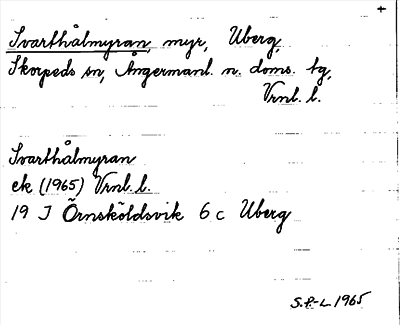 +
Svarthålmyran, myr, Uberg,
Skorpeds sn, Ångermanl. n. doms. tg,
Vrnl. l.
Svarthålmyran
ek (1965) Vrnl. l.
19 J Örnsköldsvik 6 c Uberg
S.P-L. 1965